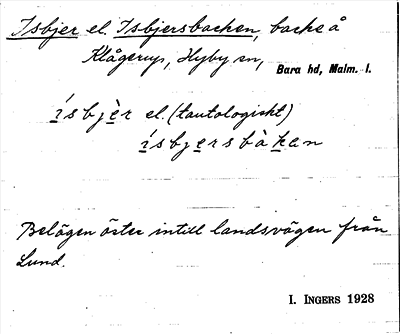 Isbjer el. Isbjersbacken, backe å
Klågerup, Hyby sn, Bara hd, Malm. l.
ísbjèr el. (tautologiskt)
ísbjersbàkan
Belägen öster intill landsvägen från
Lund.
I. INGERS 1928